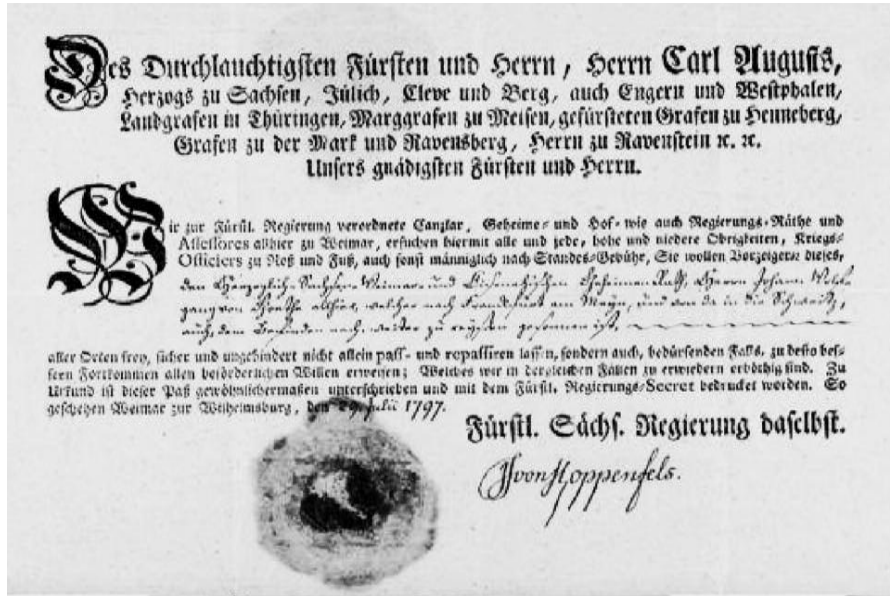 Des Durchlauchtigsten Fürsten und Herrn, Herrn Carl Augusts,
Herzogs zu Sachsen, Jülich, Cleve und Berg, auch Engern und Westphalen,
Landgrafen in Thüringen, Marggrafen zu Meisen, gefürsteten Grafen zu Henneberg,
Grafen zu der Mark und Ravensberg, Herrn zu Ravenstein ꝛc. ꝛc.
Unsers gnädigsten Fürsten und Herrn.
Wir zur Fürstl. Regierung verordnete Canzlar, Geheime- und Hof- wie auch Regierungs-Räthe und
Assessores allhier zu Weimar, ersuchen hiermit alle und jede, hohe und niedere Obrigkeiten, Kriegs-
Officiers zu Roß und Fuß, auch sonst männiglich nach Standes-Gebühr, Sie wollen Vorzeigern dieses,
den Herzoglich Sachsen Weimar- und Eisenachischen Geheimen Rath, Herrn Johann Wolf-
gang von Goethe allhier, welcher nach Frankfurt am Mayn, und von da in die Schweitz,
auch, dem Befinden nach, weiter zu reyßen gesonnen ist,
aller Orten frey, sicher und ungehindert nicht allein pass- und repassiren lassen, sondern auch, bedürfenden Falls, zu desto bes-
sern Fortkommen allen beförderlichen Willen erweisen; Welches wir in dergleichen Fällen zu erwiedern erböthig sind. Zu
Urkund ist dieser Paß gewöhnlichermaßen unterschrieben und mit dem Fürstl. Regierungs-Secret bedrucket worden. So
geschehen Weimar zur Wilhelmsburg, den 29 Julii 1797.
Fürstl. Sächs. Regierung daselbst.
von Koppenfels.